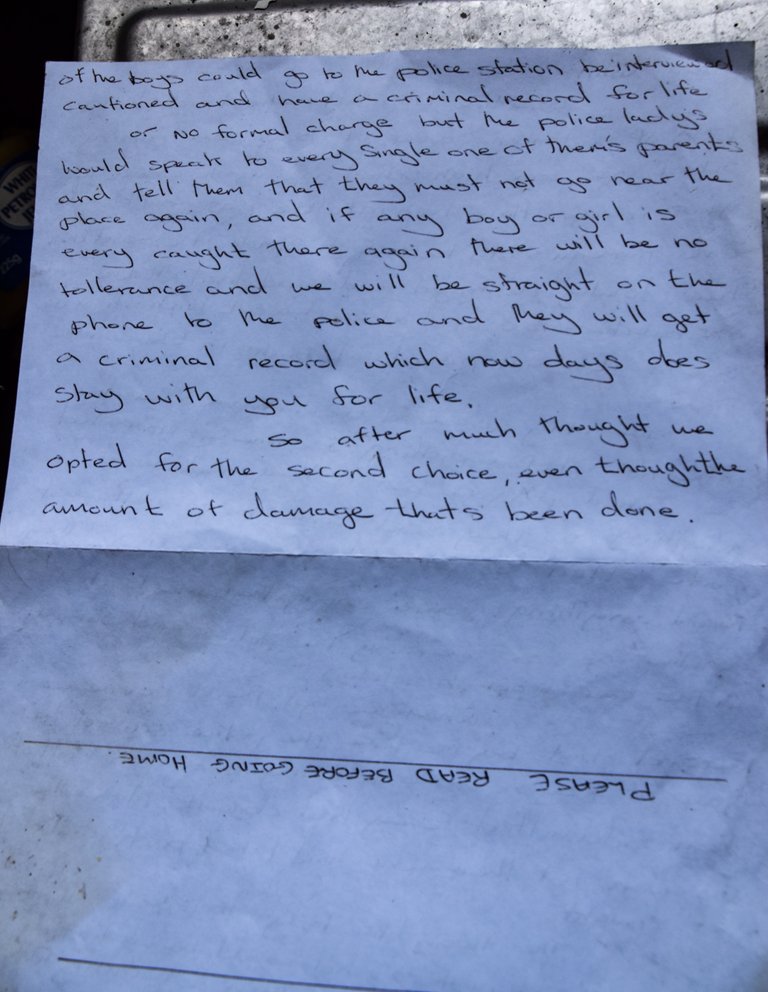 of the boys could go to the police station be interviewed
cautioned and have a criminal record for life
or no formal charge but the police ladys
would speak to every single one of them's parents
and tell them that they must not go near the
place again, and if any boy or girl is
every caught there again there will be no
tollerance and we will be straight on the
phone to the police and they will get
a criminal record which now days does
stay with you for life.
So after much thought we
opted for the second choice, even thought the
amount of damage thats been done.
PLEASE READ BEFORE GOING HOME.
WHITE
PETRO
225g